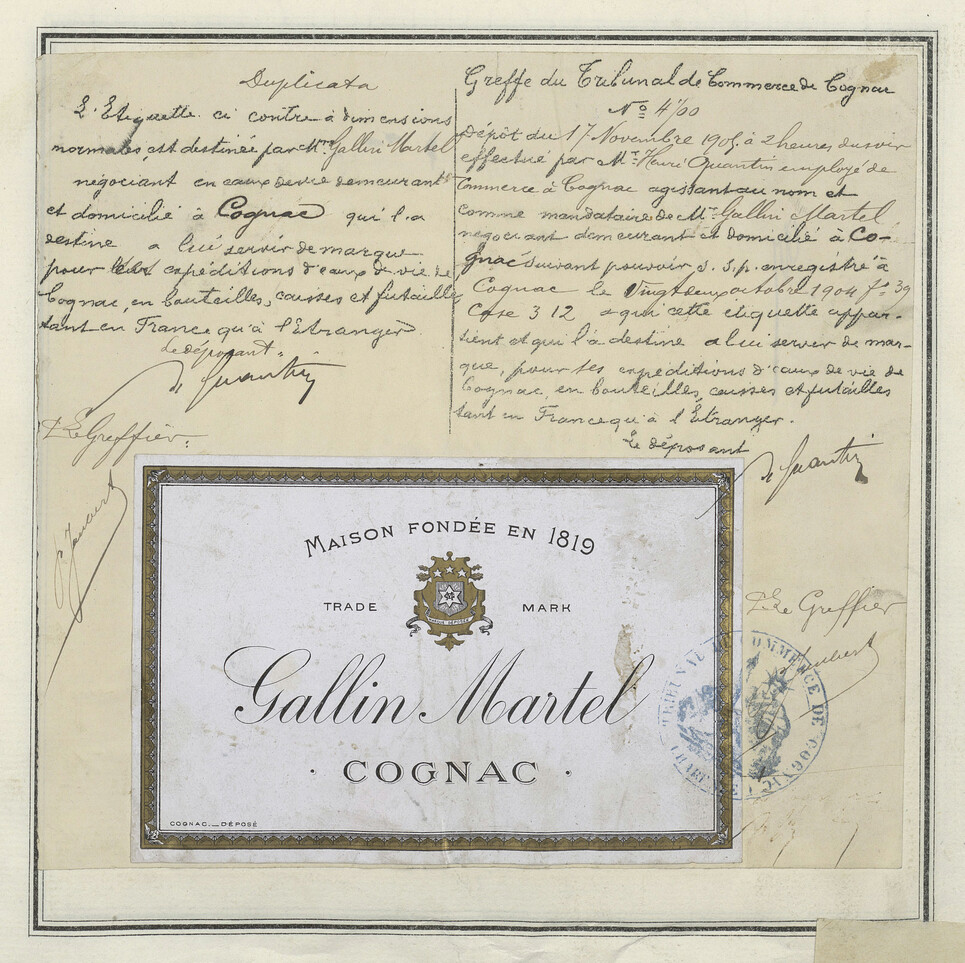 Duplicata
L'Etiquette ci contre à dimensions
normales, est destinée par Mr. Gallin Martel
négociant en eaux de vie demeurant
et domicilié à Cognac qui l'a
destine a lui servir de marque
pour ses expéditions d'eaux de vie de
Cognac, en bouteilles, caisses et futailles
tant en France qu'à l'Etranger.
Le déposant
H Quantin
Le Greffier
Greffe du Tribunal de Commerce de Cognac
No
Dépôt du 17 Novembre 1905, à 2 heures du soir
effectué par Mr. Henri Quantin employé de
Commerce à Cognac agissant au nom et
comme mandataire de Mr. Gallin Martel,
négociant demeurant et domicilié à Co-
gnac suivant pouvoir s. s. p. enregistré à
Cognac le vingt deux octobre 1904 fo 39
Case 312 a qui cette étiquette appar-
tient et qui l'a destine a lui servir de mar-
que, pour ses expéditions d'eaux de vie de
Cognac, en bouteilles, caisses et futailles
tant en France qu'à l'Etranger.
Le déposant
H Quantin
Le Greffier
MAISON FONDÉE EN 1819
TRADE MARK
MARQUE DÉPOSÉE
Gallin Martel
· COGNAC ·
COGNAC._DÉPOSÉ
TRIBUNAL DE COMMERCE DE COGNAC